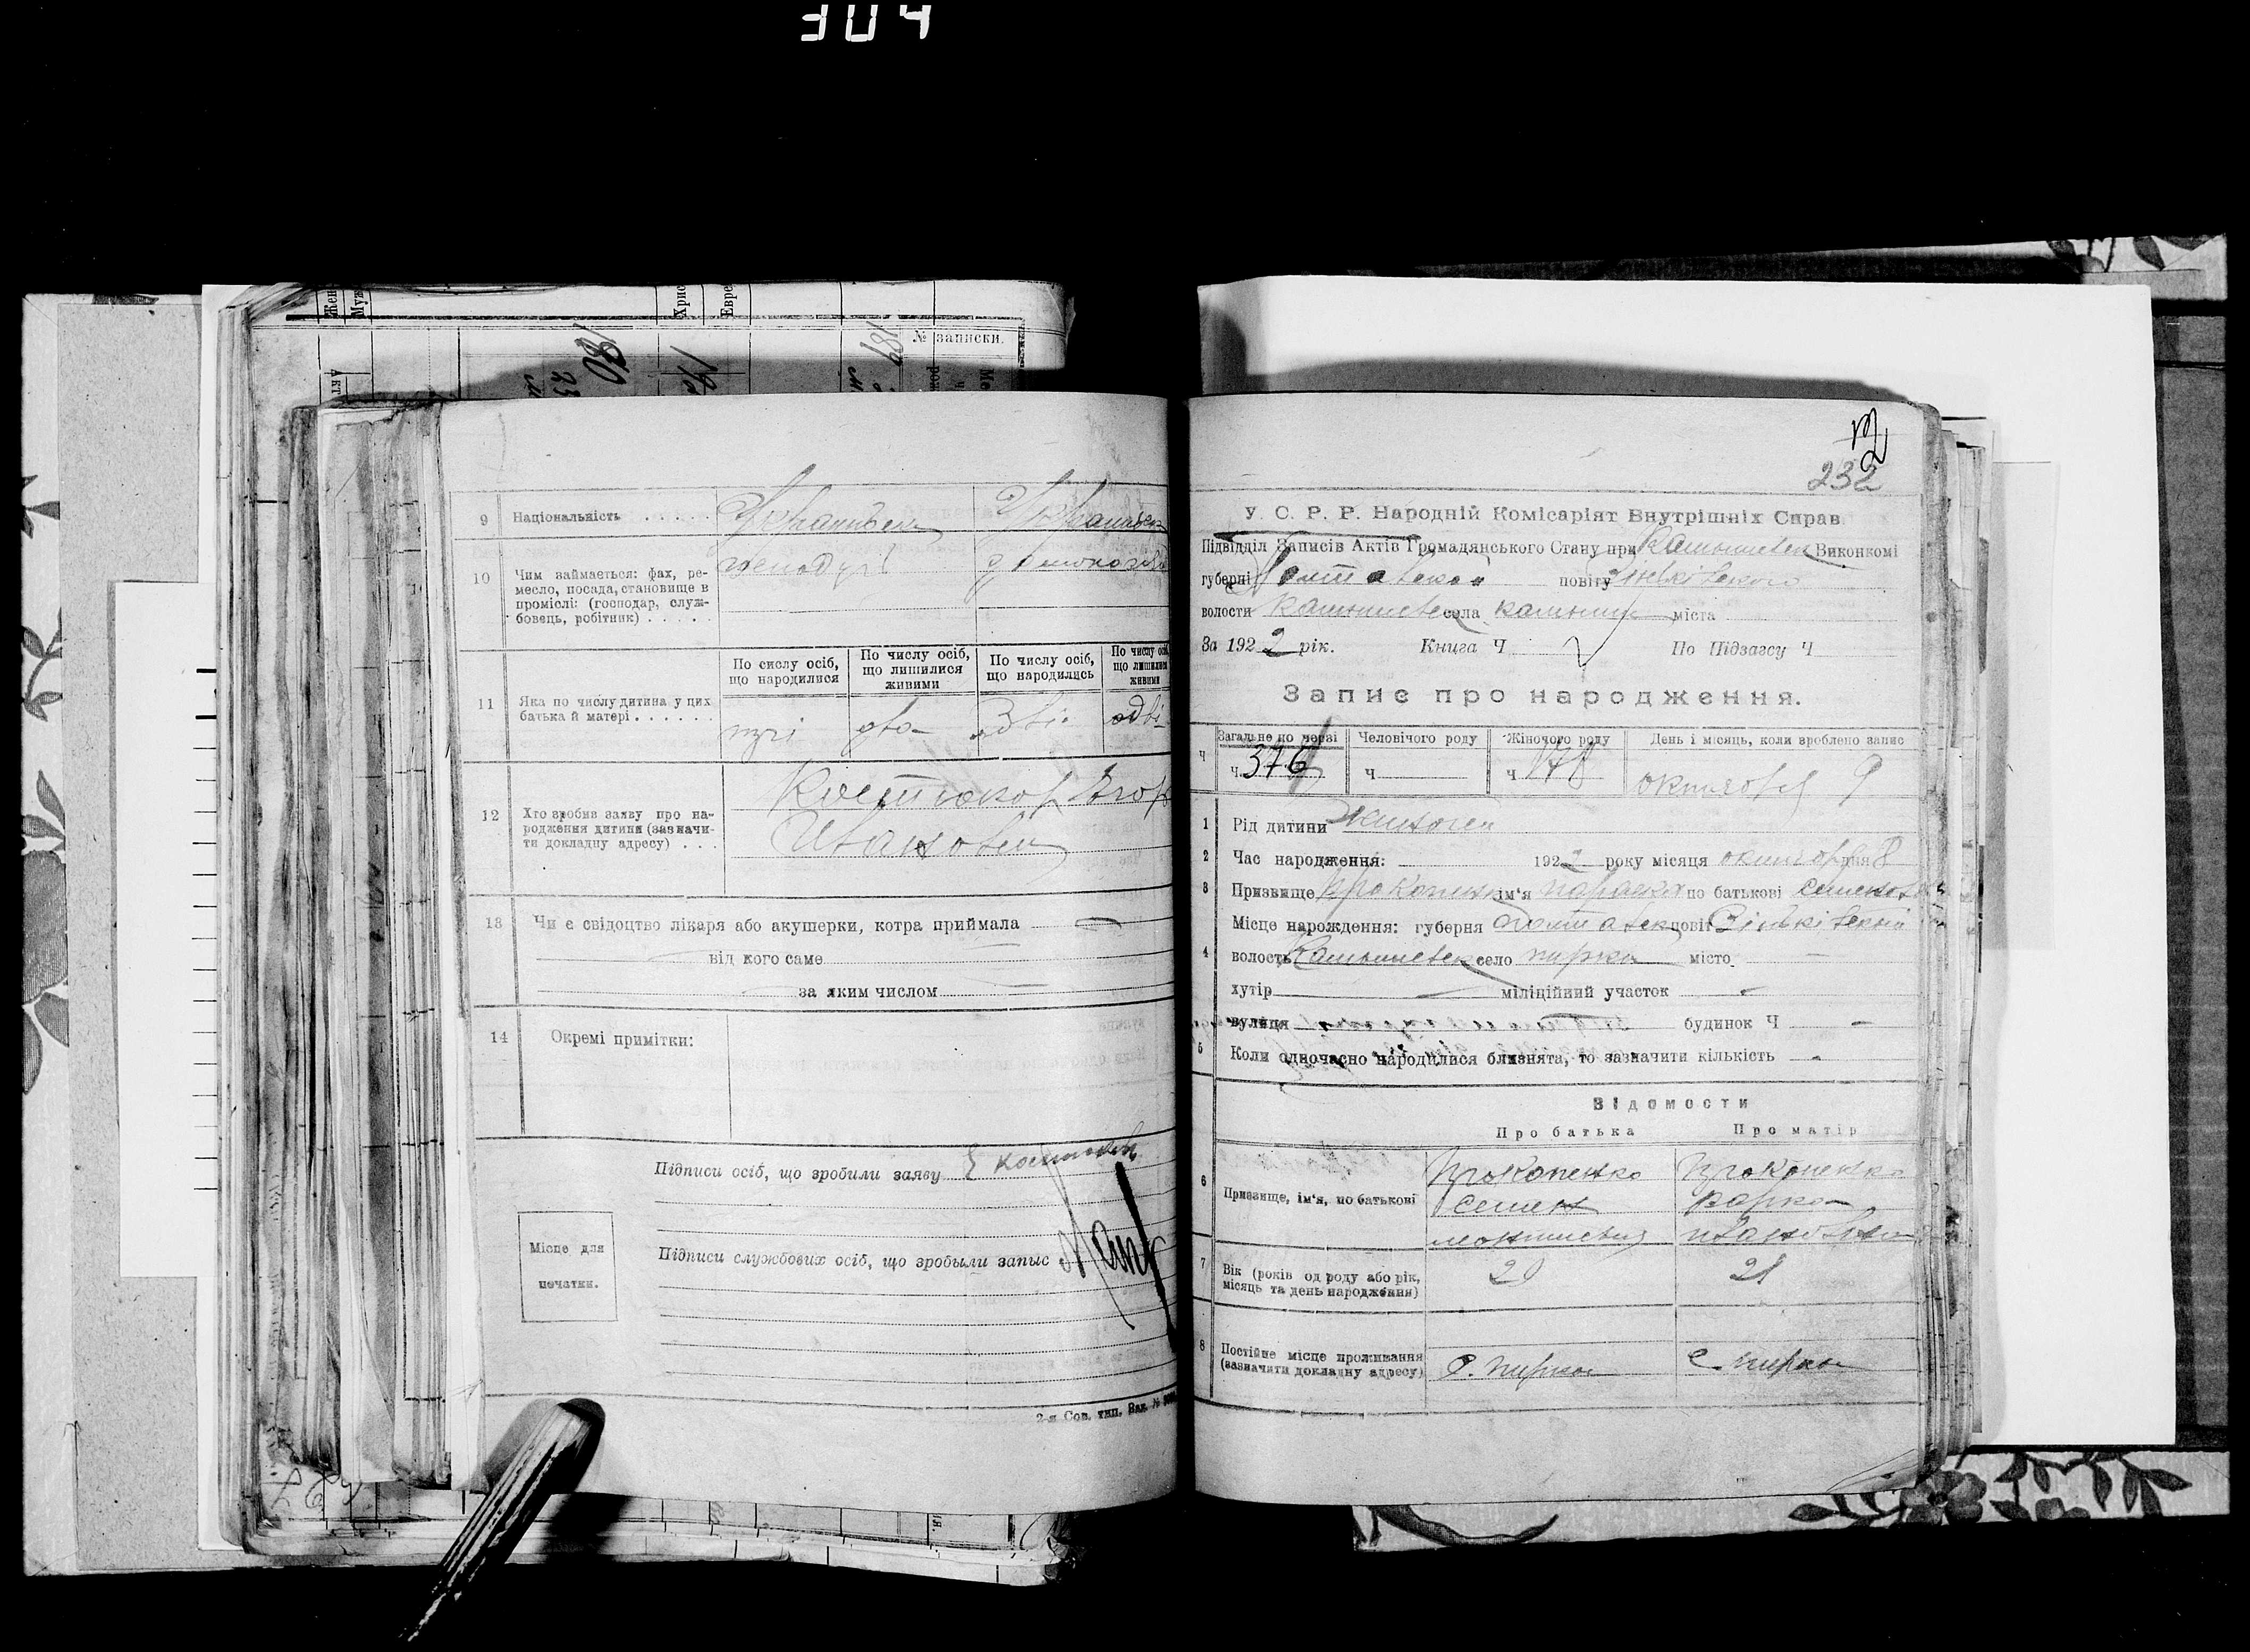 304
№ записки.
180
189
9 Національність . . . . . .
10 Чим займається: фах, ре-
месло, посада, становище в
проміслі: (господар, служ-
бовець, робітник) . . . . .
По сислу осіб,
що народилися
По числу осіб,
що лишилися
живими
По числу осіб,
що народились
По числу осіб
що лишилися
живими
11 Яка по числу дитина у цих
батька й матері . . . . . .
три два
12 Хто зробив заяву про на-
родження дитини (зазначи-
ти докладну адресу) . . .
Иванович
13 Чи є свідоцтво лікаря або акушерки, котра приймала
від кого саме
за яким числом
14 Окремі примітки:
Підписи осіб, що зробили заяву
Місце для
печатки.
Підписи службових осіб, що зробыли запыс
2-я Сов. тип. Зак. №
232
У. С. Р. Р. Народній Комісаріят Внутрішніх Справ
Підвідділ Записів Актів Громадянського Стану при Виконкомі
губерні Полтавской повіту Зіньківского
волости села міста
За 1922 рік. Книга Ч По Підзагсу Ч
Запис про народження.
Загальне по черзі Человічого роду Жіночого роду День і місяць, коли зроблено запис
Ч ч 376 ч ч 178 октября 9
1 Рід дитини
2 Час народження: 1922 року місяця октября дня 8
3 Призвище Прокопенко ім'я Параска по батькові Семенов
Місце нарождення: губерня Полтавск повіт Зіньківский
4 волость село пирки місто
хутір міліційний участок
вулиця будинок Ч
5 Коли одночасно народилися близнята, то зазначити кількість
Відомости
Про батька Про матір
6 Призвище, ім'я, по батькові
Прокопенко Прокопенко
Семен Варка
Ивановна
7 Вік (років од роду або рік,
місяць та день народження)
21
8 Постійне місце проживання
(зазначити докладну адресу)
с. пирки с. пирки